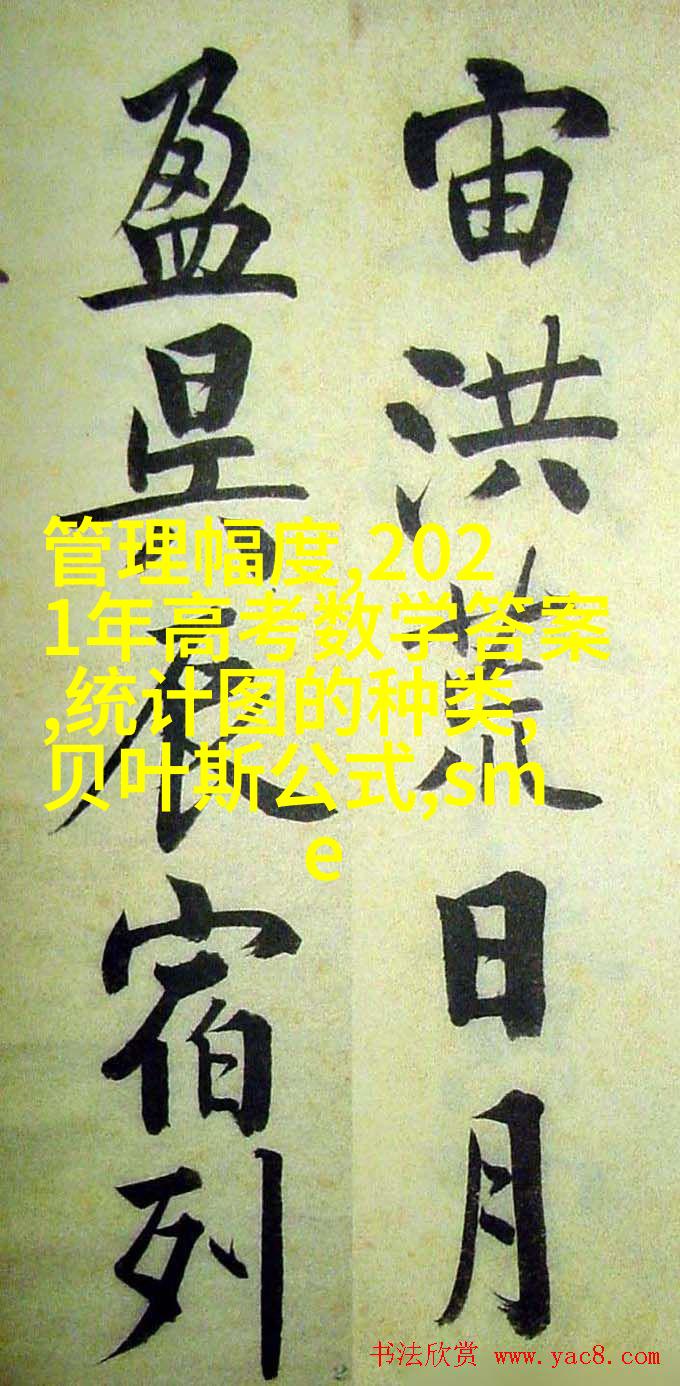 宙洪荒日月
盈昃辰宿列
管理幅度,202
1年高考数学答案
,统计图的种类,
贝叶斯公式,sm
e
书法欣赏 www.yac8.com